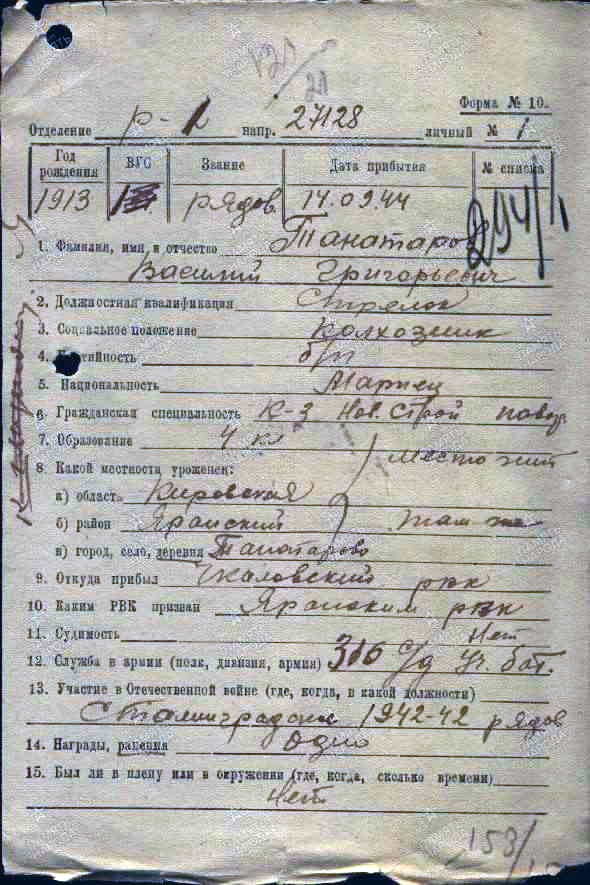 121/21
Форма № 10.
Отделение р-1 напр. 27128 личный № 1
Год рождения ВУС Звание Дата прибытия № списка
1913 1 рядов. 14.09.44 294/1
1. Фамилия, имя и отчество Танатаров
Василий Григорьевич
2. Должностная квалификация Стрелок
3. Социальное положение Колхозник
4. Партийность б/п
5. Национальность Мариец
6. Гражданская специальность К-з Нов. Строй
7. Образование 4 кл место жит
8. Какой местности уроженец:
а) область Кировская
б) район Яранский там же
в) город, село, деревня Танатарово
9. Откуда прибыл Чкаловский рвк
10. Каким РВК призван Яранским рвк
11. Судимость Нет
12. Служба в армии (полк, дивизия, армия) 316 с/д Уч. бат.
13. Участие в Отечественной войне (где, когда, в какой должности)
Сталинградск 1942-42 рядов
14. Награды, ранения одно
15. Был ли в плену или в окружении (где, когда, сколько времени)
Нет
153/